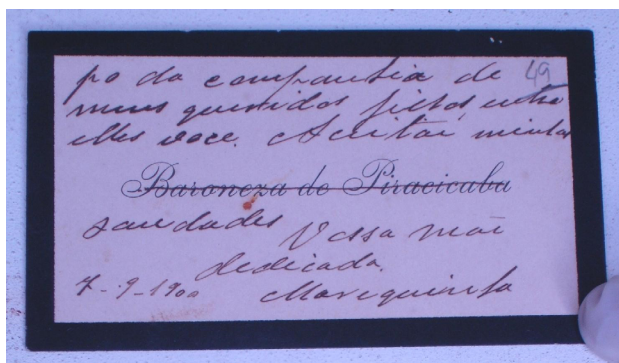 49
po da companhia de
meus queridos filhos, entre
elles voce. Aceitai minhas
Baroneza de Piracicaba
saudades Vossa mãe
dedicada,
7-9-1900 Marequinha